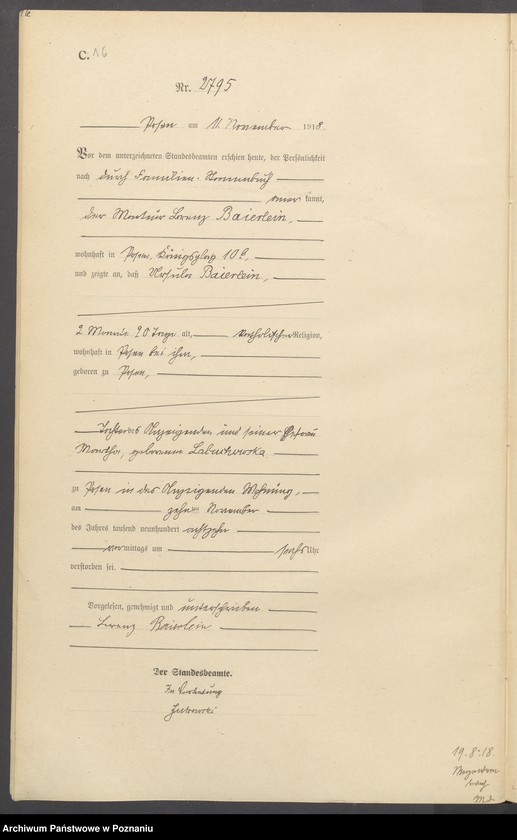 C. 16
Nr. 2795
Posen am 11. November 1918.
Vor dem unterzeichneten Standesbeamten erschien heute, der Persönlichkeit
nach durch Familien-Stammbuch
aner kannt,
der Monteur Lorenz Baierlein,
wohnhaft in Posen, Königsplatz 10
und zeigte an, daß Ursula Baierlein,
2 Monate 20 Tage alt, katholischer Religion,
wohnhaft in Posen bei ihm,
geboren zu Posen,
Tochter des Anzeigenden und seiner Ehefrau
Martha, geborenen
zu Posen in des Anzeigenden Wohnung,
am zehn November
des Jahres tausend neunhundert achtzehn
vor mittags um sechs Uhr
verstorben sei.
Vorgelesen, genehmigt und unterschrieben
Lorenz Baierlein
Der Standesbeamte.
In Vertretung
19.8.18.
Archiwum Państwowe w Poznaniu